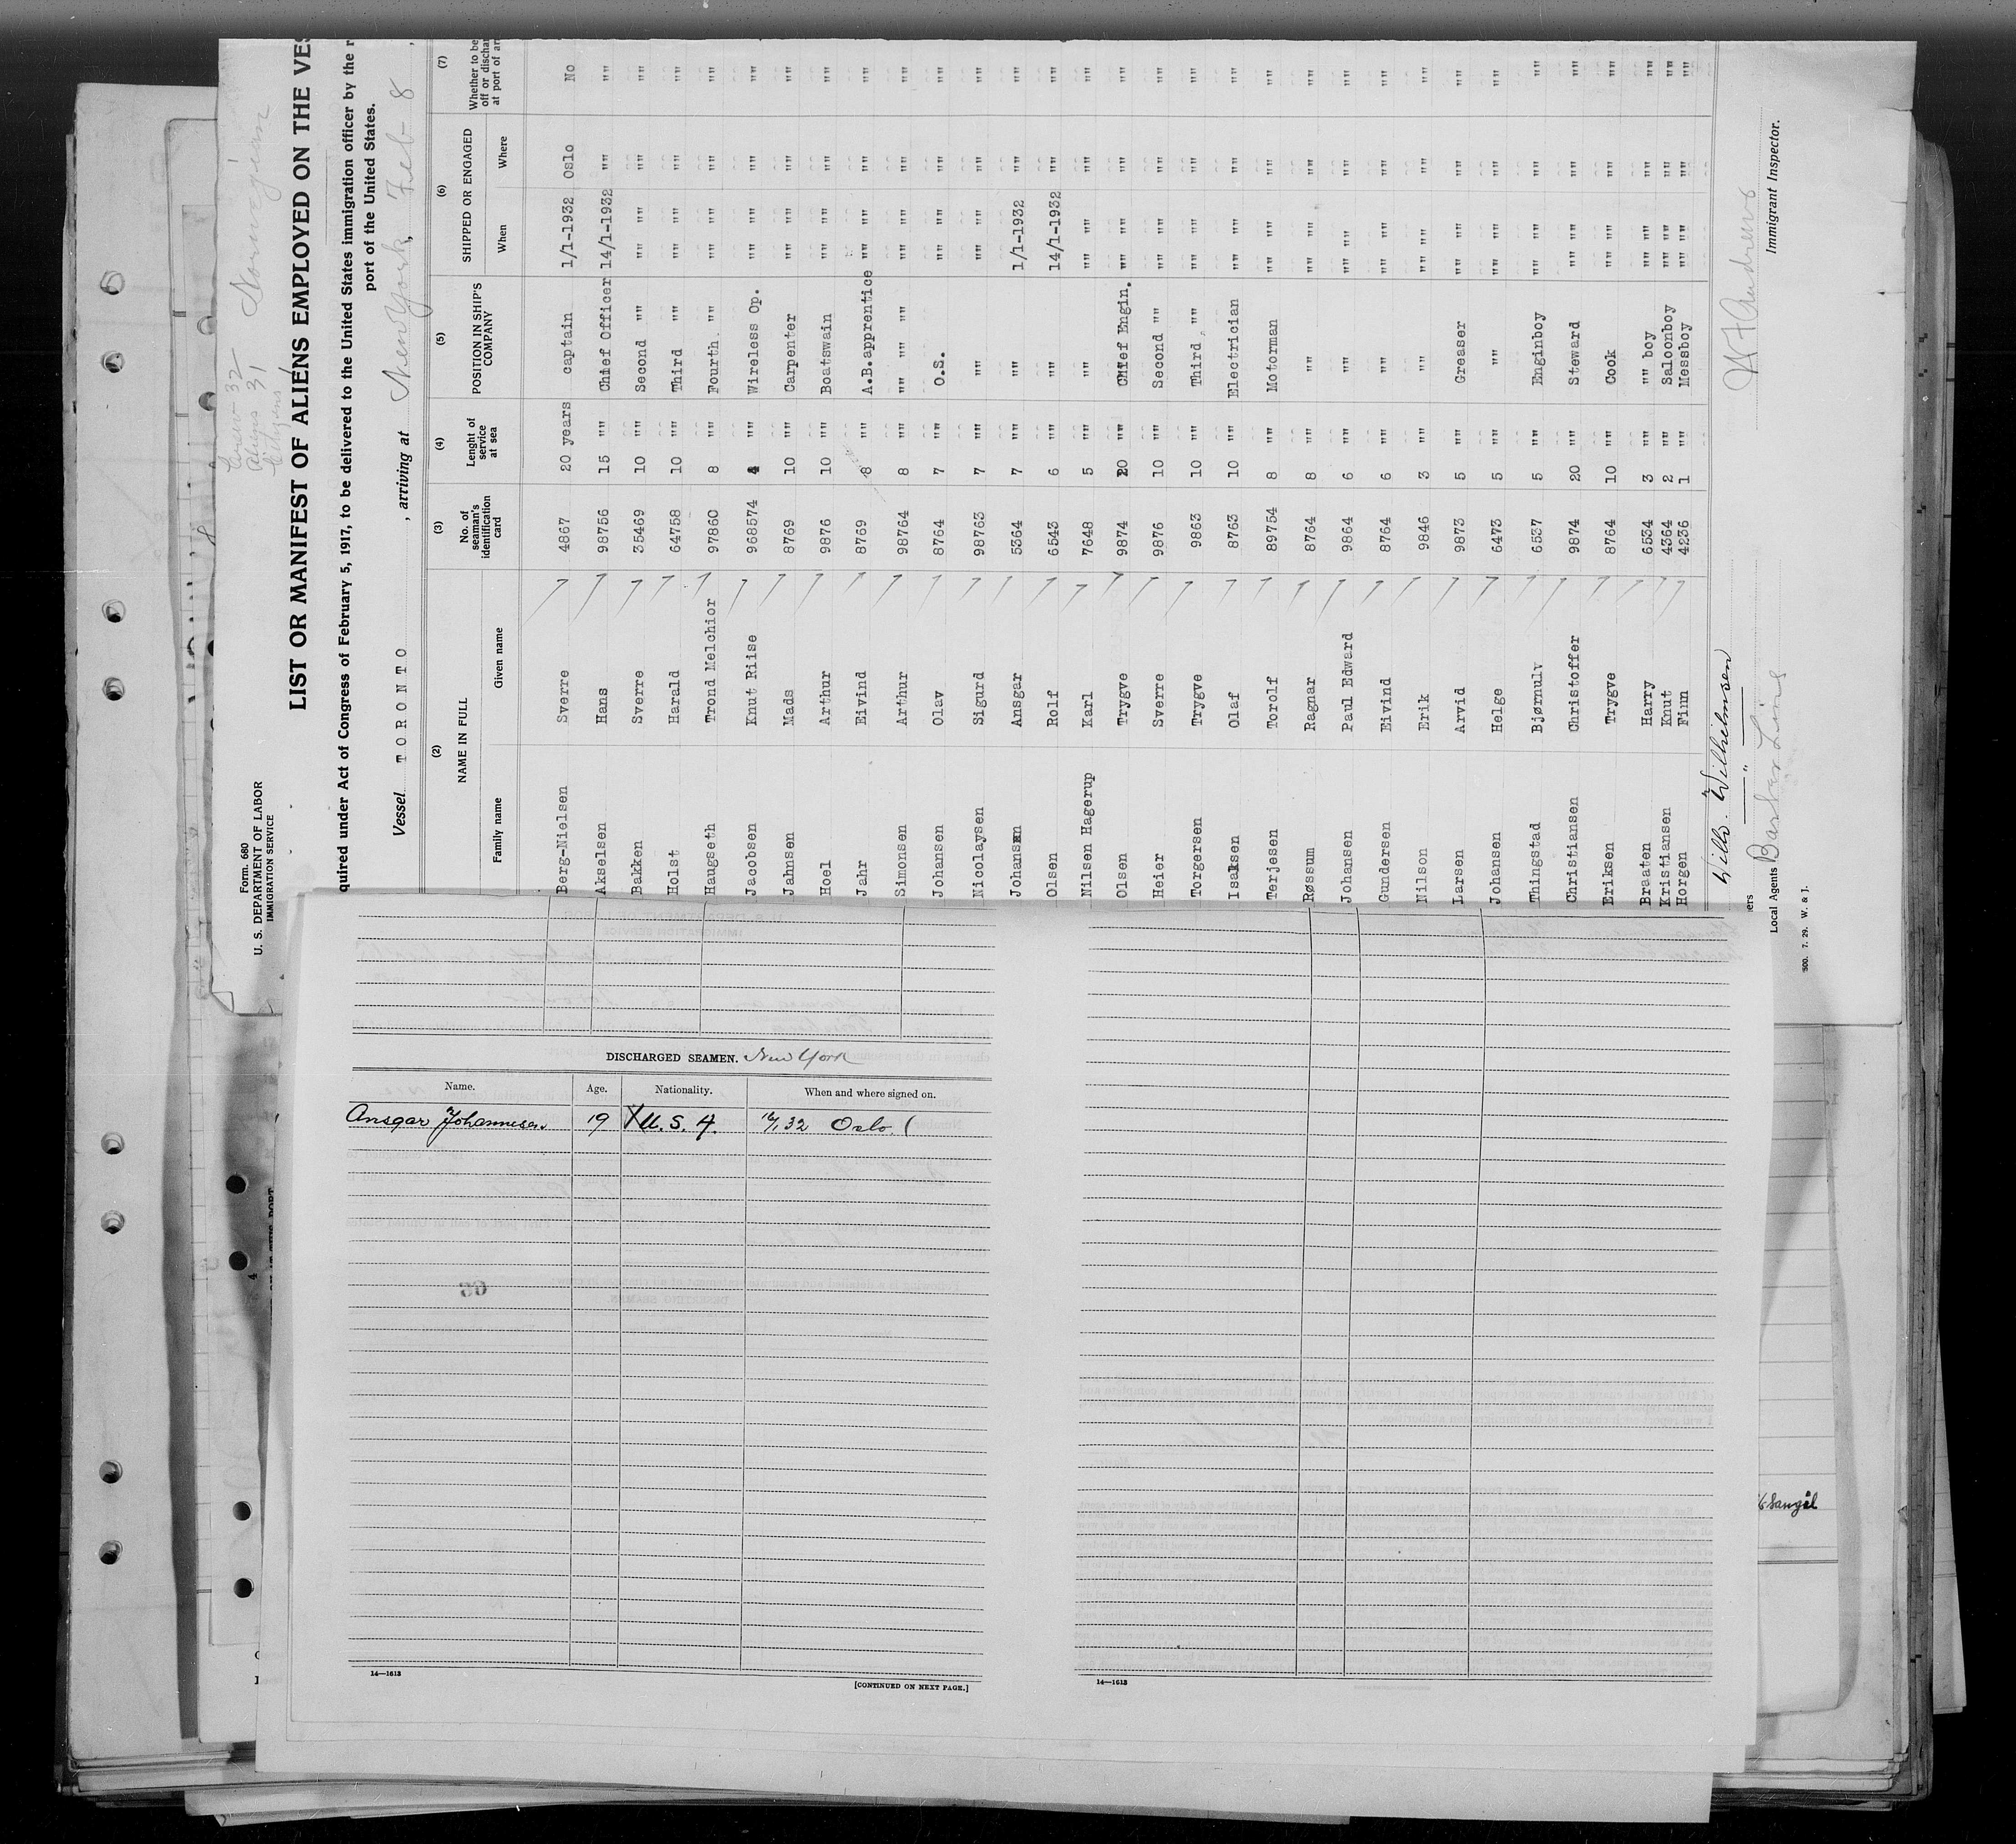 Form. 680
U. S. DEPARTMENT OF LABOR
IMMIGRATION SERVICE
Crew 32
Aliens 31
Citizens 1
Norwegian
LIST OR MANIFEST OF ALIENS EMPLOYED ON THE VES
quired under Act of Congress of February 5, 1917, to be delivered to the United States immigration officer by the r
port of the United States.
Vessel TORONTO , arriving at New York, Feb 8 ,
(2) (3) (4) (5) (6) (7)
NAME IN FULL No. of seaman's identification card Lenght of service at sea POSITION IN SHIP'S COMPANY SHIPPED OR ENGAGED Whether to be off or dischar at port of ar
Family name Given name When Where
Berg-Nielsen Sverre 4867 20 years captain 1/1-1932 Oslo No
Akselsen Hans 98756 15 "" Chief Officer 14/1-1932 "" ""
Bakken Sverre 35469 10 "" Second "" "" "" "" ""
Holst Harald 64758 10 "" Third "" "" "" "" ""
Haugseth Trond Melchior 97860 8 "" Fourth "" "" "" "" ""
Jacobsen Knut Riise 968574 4 "" Wireless Op. "" "" "" ""
Jahnsen Mads 8769 10 "" Carpenter "" "" "" ""
Hoel Arthur 9876 10 "" Boatswain "" "" "" ""
Jahr Eivind 8769 8 "" A.B.apprentice "" "" "" ""
Simonsen Arthur 98764 8 "" "" "" "" "" "" "" ""
Johansen Olav 8764 7 "" O.S. "" "" "" ""
Nicolaysen Sigurd 98763 7 "" "" "" "" "" ""
Johansen Ansgar 5364 7 "" "" 1/1-1932 "" ""
Olsen Rolf 6543 6 "" "" 14/1-1932 "" ""
Nilsen Hagerup Karl 7648 5 "" "" "" "" "" ""
Olsen Trygve 9874 20 "" Chief Engin. "" "" "" ""
Heier Sverre 9876 10 "" Second "" "" "" "" ""
Torgersen Trygve 9863 10 "" Third, "" "" "" "" ""
Isaksen Olaf 8763 10 "" Electrician "" "" "" ""
Terjesen Torolf 89754 8 "" Motorman "" "" "" ""
Røssum Ragnar 8764 8 "" "" "" "" "" ""
Johansen Paul Edward 9864 6 "" "" "" "" "" ""
Gundersen Eivind 8764 6 "" "" "" "" "" ""
Nilson Erik 9846 3 "" "" "" "" "" ""
Larsen Arvid 9873 5 "" Greaser "" "" "" ""
Johansen Helge 6473 5 "" "" "" "" "" ""
Thingstad Bjørnulv 6537 5 "" Enginboy "" "" "" ""
Christiansen Christoffer 9874 20 "" Steward "" "" "" ""
Eriksen Trygve 8764 10 "" Cook "" "" "" ""
Braaten Harry 6534 3 "" "" boy "" "" "" ""
Kristiansen Knut 4364 2 "" Saloonboy "" "" "" ""
Horgen Finn 4236 1 "" Messboy "" "" "" ""
Wilh. Wilhelmsen
ners — " —
Local Agents Barber Line
W F Andrews
Immigrant Inspector.
500. 7. 29. W. & J.
DISCHARGED SEAMEN. New York
Name. Age. Nationality. When and where signed on.
Ansgar Johannesen 19 X U.S.A. 32 Oslo
14—1613
[CONTINUED ON NEXT PAGE.]
14—1613